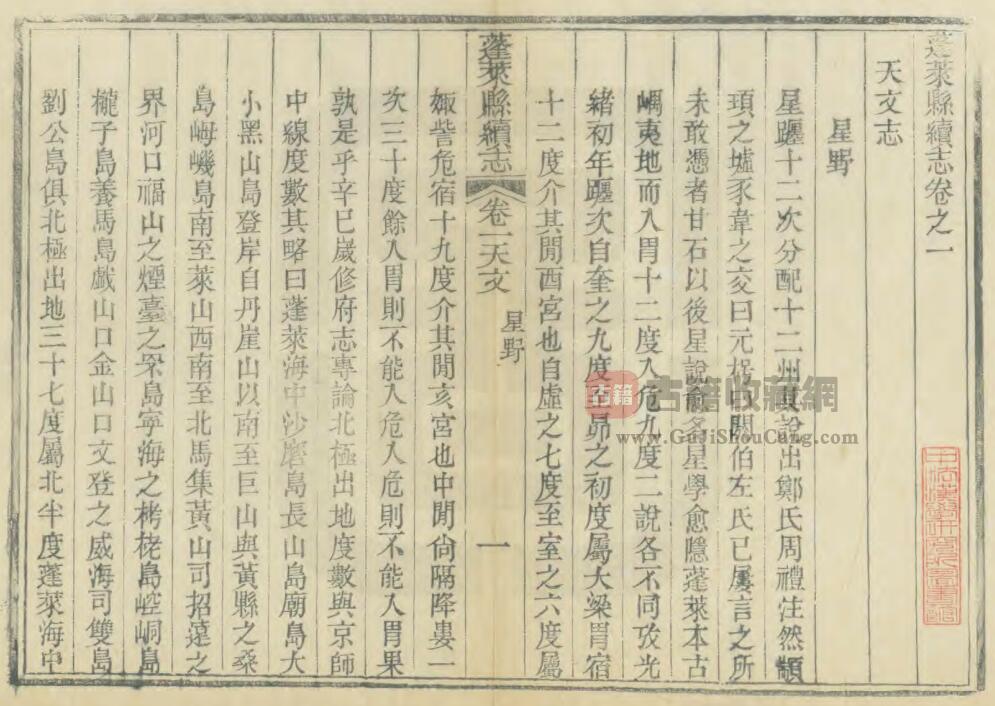 蓬萊縣續志卷之一
天文志
星野
星躔十二次分配十二州其說出鄭氏周禮注然顓
頊之墟豕韋之交曰元枵曰閼伯左氏已屢言之所
未敢憑者甘石以後星說愈多星學愈隱蓬萊本古
嵎夷地而入胃十二度入危九度二說各不同攷光
緒初年躔次自奎之九度至昴之初度屬大梁胃宿
十二度介其閒酉宮也自虛之七度至室之六度屬
蓬萊縣續志
卷一天文
星野
一
娵訾危宿十九度介其閒亥宮也中閒尙隔降婁一
次三十度餘入胃則不能入危入危則不能入胃果
孰是乎辛巳歲修府志專論北極出地度數與京師
中線度數其略曰蓬萊海中沙磨島長山島廟島大
小黑山島登岸自丹崖山以南至巨山與黃縣之桑
島㟂嶼島南至萊山西南至北馬集黃山司招遠之
界河口福山之煙臺之罘島寧海之栲栳島崆峒島
㰍子島養馬島戲山口金山口文登之威海司雙島
劉公島俱北極出地三十七度屬北半度蓬萊海中
古籍
古籍收藏網
www.GuJiShouCang.com